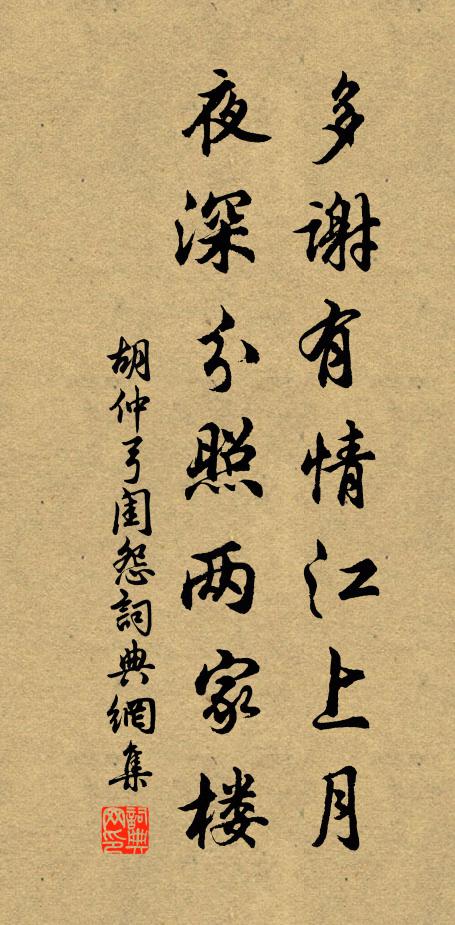 多谢有情江上月
夜深分照两家楼
胡仲弓闺怨词典网集
词典网印